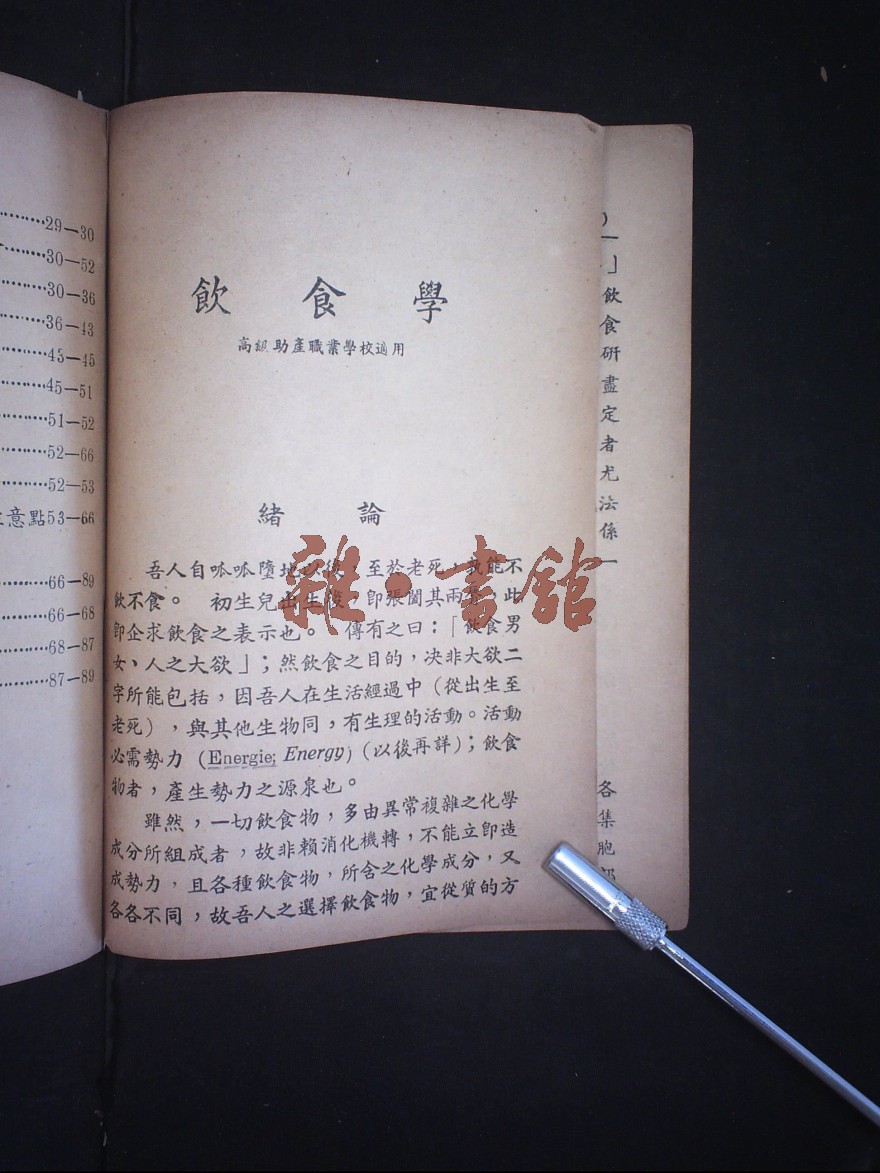 29—30
30—52
30—36
36—43
43—45
45—51
51—52
52—66
52—53
意點53—66
66—89
66—68
68—87
87—89
飲食學
高級助產職業學校適用
緒論
吾人自呱呱墮地以後，至於老死，孰能不
飲不食。 初生兒出生後，卽張闔其兩唇。此
卽企求飲食之表示也。 傳有之曰：「飲食男
女、人之大欲」；然飲食之目的，決非大欲二
字所能包括，因吾人在生活經過中（從出生至
老死），與其他生物同，有生理的活動。活動
必需勢力（Energie; Energy）（以後再詳）；飲食
物者，產生勢力之源泉也。
雖然，一切飲食物，多由異常複雜之化學
成分所組成者，故非賴消化機轉，不能立卽造
成勢力，且各種飲食物，所含之化學成分，又
各各不同，故吾人之選擇飲食物，宜從質的方
雜·書館
」
飲
食
研
盡
定
者
尤
法
係
各
集
胞